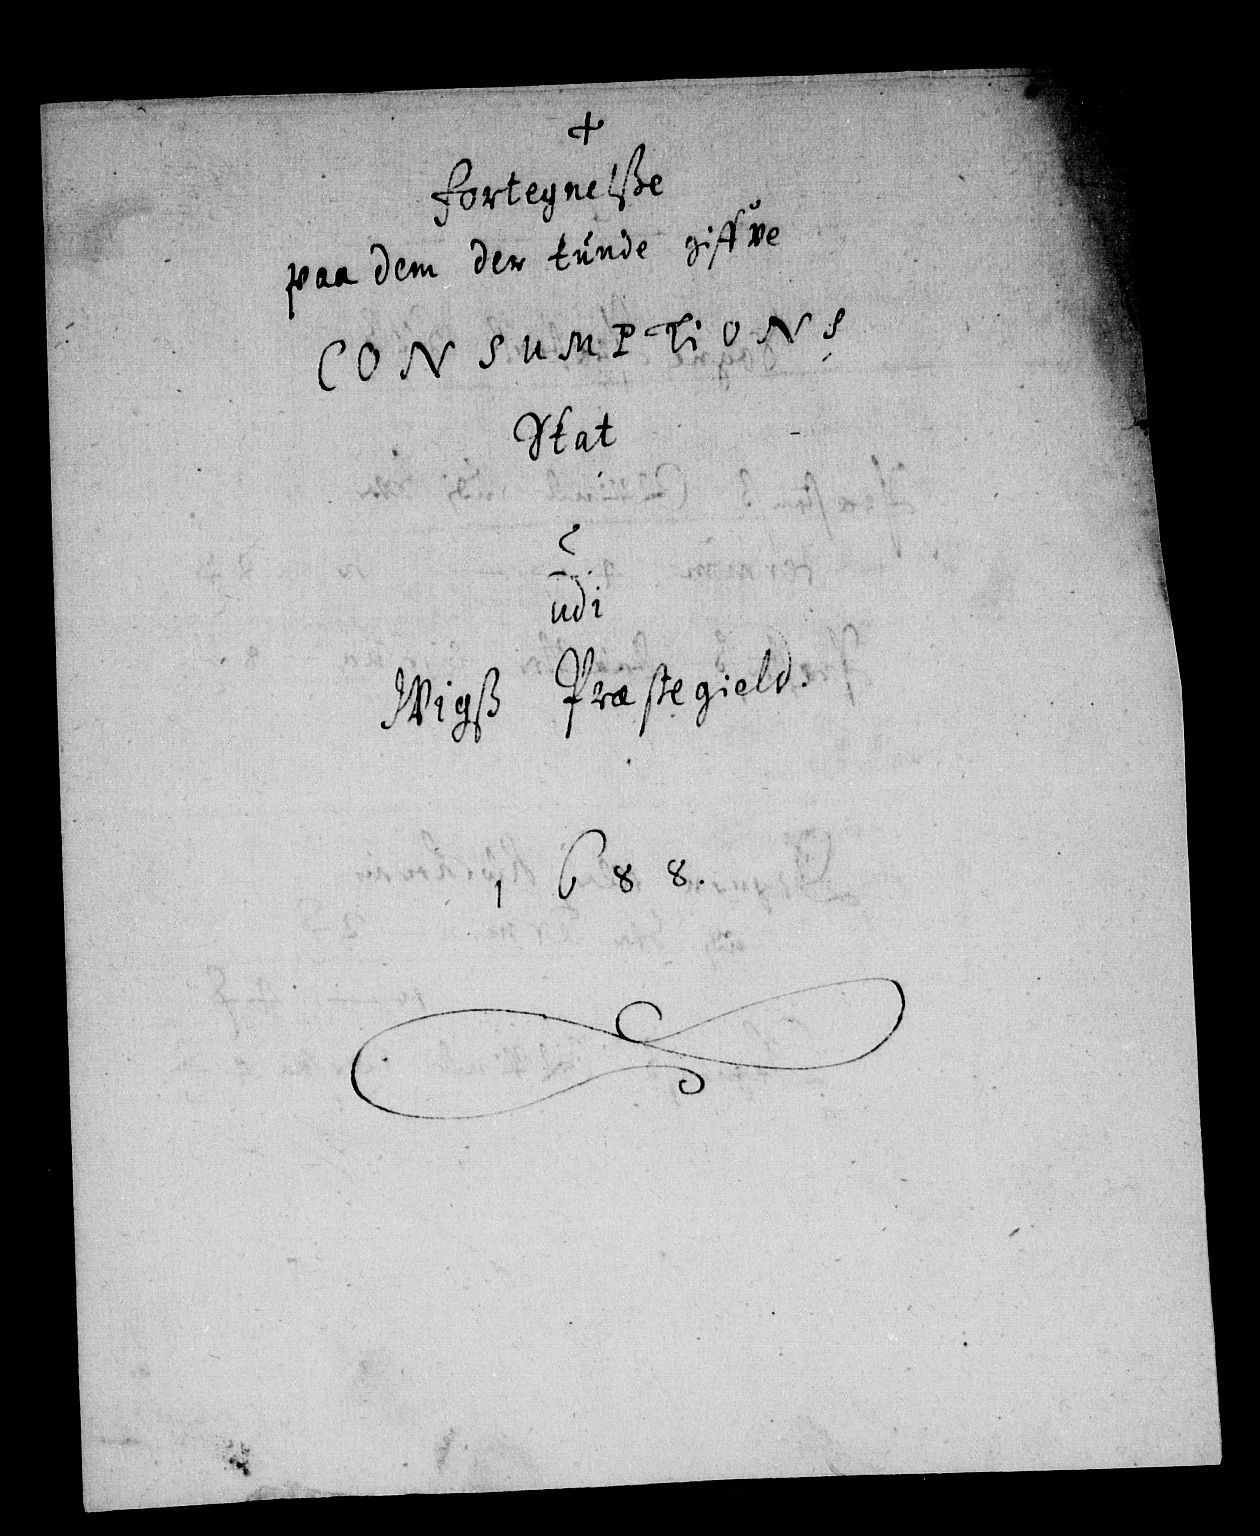 +
fortegnelße
paa dem der kunde giffve
CONSUMPTIONS
Skat
udi
Wigß Præstegield.
1688.